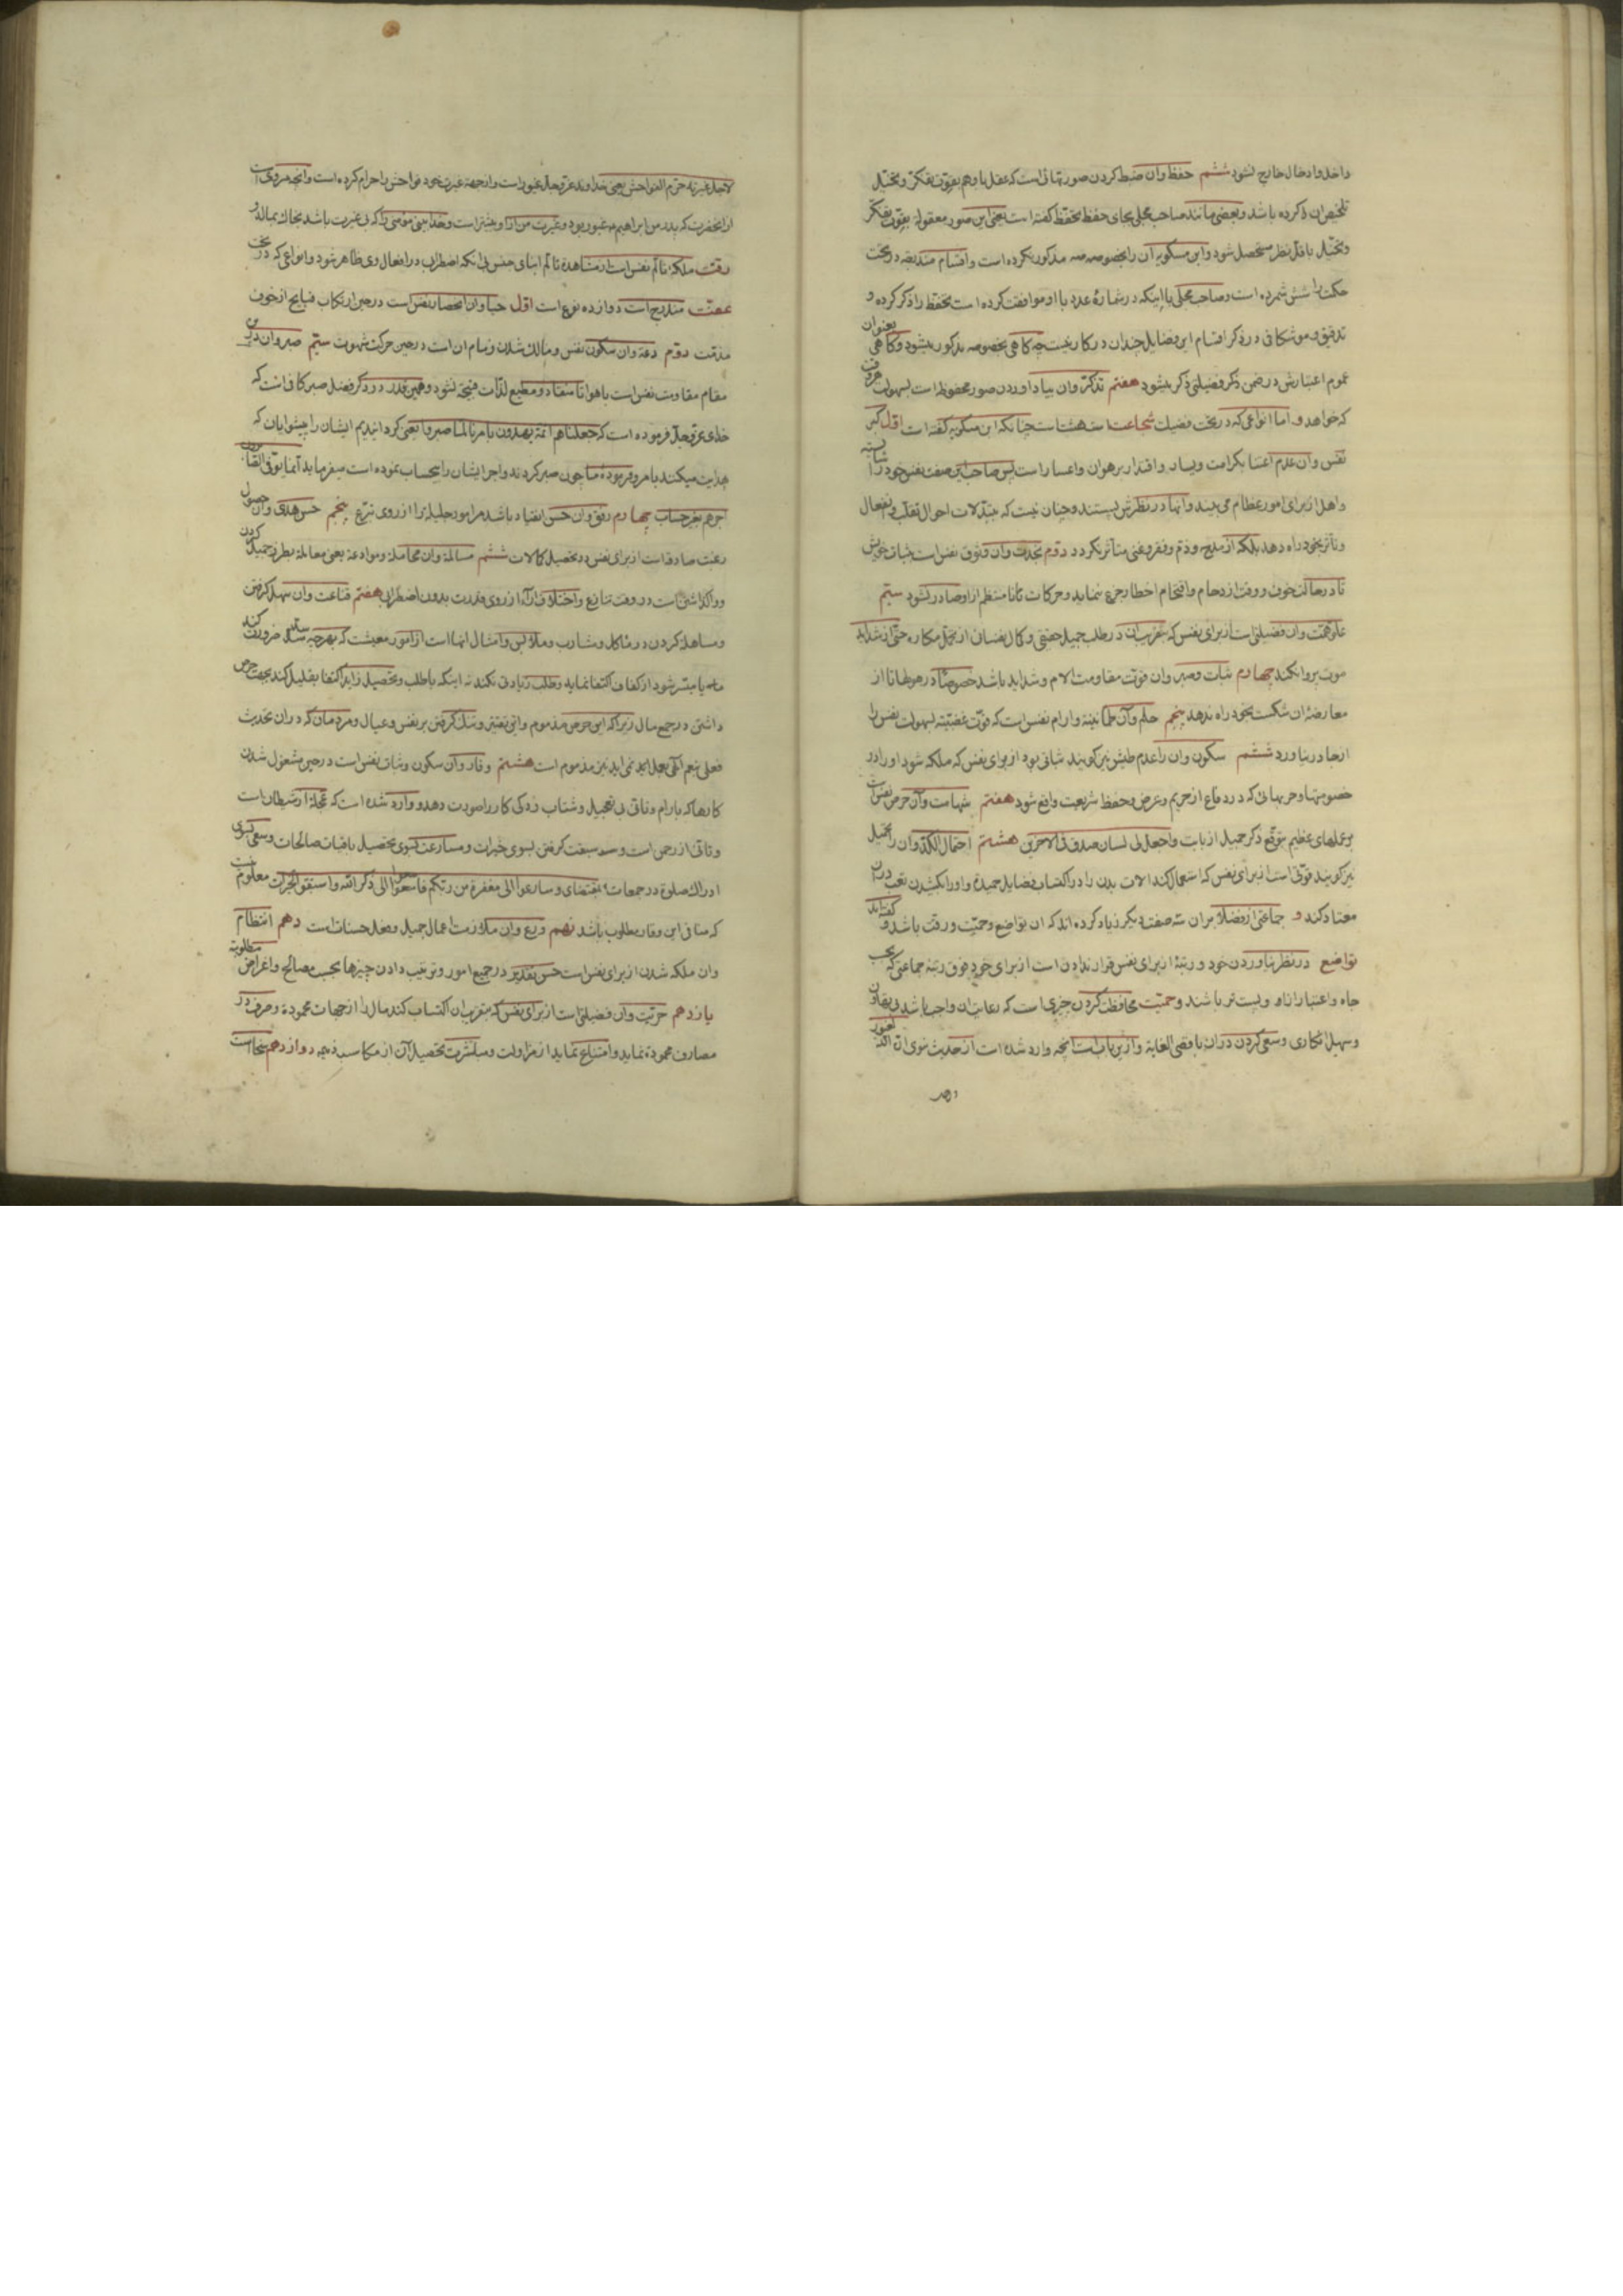 داخل و ادخال خارج نشود ششم حفظ و آن ضبط کردن صورتهائی است که عقل یا وهم بقوت تفکر و تخیل
تلخیص آن کرده باشد و بعضی مانند صاحب مجلی بجای حفظ تحفظ گفته است یعنی این صور معقوله بقوت تفکر
و تخیل باقل نظر مستحصل شود و ابن مسکویه آن را بخصوصه مذکور نکرده است و اقسام مندرجه در تحت
حکمت را شش شمرده است و صاحب مجلی با اینکه در شمارهٔ عدد با او موافقت کرده است تحفظ را ذکر کرده و
تدقیق و موشکافی در ذکر اقسام این فضایل چندان در کار نیست چه گاهی بخصوصه مذکور میشود و گاهی بعنوان
عموم اعتبارش در ضمن ذکر فضیلتی ذکر میشود هفتم تذکر و آن بیاد آوردن صور محفوظه است بسهولت هر وقت
که خواهد و اما انواعی که در تحت فضیلت شجاعت است هشت است چنانکه ابن مسکویه گفته است اول کبر
نفس و آن عدم اعتنا بکرامت و یسار و اقتدار بر هوان و اعسار است پس صاحب این صفت نفس خود را شایسته
و اهل از برای امور عظام می بیند و آنها در نظرش پستند و چنان نیست که بتبدلات احوال تقلب و انفعال
و تأثر بخود راه دهد بلکه از مدح و ذم و فقر و غنی متأثر نگردد دوم نجدت و آن وثوق نفس است بثبات خویش
تا در حالت خوف و وقت ازدحام و اقتحام اخطار جزع ننماید و حرکات نامنتظم از او صادر نشود سیم
علو همت و آن فضیلتی است از برای نفس که بسبب آن در طلب جمیل حقیقی و کمال نفسانی از تحمل مکاره حتی از شداید
موت پروا نکند چهارم ثبات و صبر و آن قوت مقاومت آلام و شداید باشد خصوصا در هولها تا از
معارضهٔ آن شکست بخود راه ندهد پنجم حلم و آن طمأنینه و آرام نفس است که قوت غضبیه بسهولت نفس را
از جا در نیاورد ششم سکون و آن را عدم طیش نیز گویند ثباتی بود از برای نفس که ملکه شود او را در
خصومتها و حربهائی که در دفاع از حریم و عرض و حفظ شریعت واقع شود هفتم شهامت و آن حرص نفس است
بر عملهای عظیم بتوقع ذکر جمیل از بابت و اجعل لی لسان صدق فی الآخرین هشتم احتمال الکد و آن را تحمیل
نیز گویند قوتی است از برای نفس که استعمال کند آلات بدن را در اکتساب فضایل حمیده و او را بکشیدن تعب در آن
معتاد کند و جماعتی از فضلا بر آن سه صفت دیگر زیاد کرده اند که آن تواضع و حمیت و رقت باشد و گفته اند
تواضع در نظر نیاوردن خود و رتبهٔ از برای نفس قرار ندادن است از برای خود فوق رتبهٔ جماعتی که بحسب
جاه و اعتبار از او پست تر باشند و حمیت محافظت کردن چیزی است که رعایت آن واجب باشد بی تهاون
و سهل انگاری و سعی کردن در آن باقصی الغایة و از این باب است آنچه وارد شده است از حدیث نبوی ان الله لغیور
و لاجل
لاجل غیرته حرم الفواحش یعنی خداوند عز و جل غیور است و از جهة غیرت خود فواحش را حرام کرده است و آنچه مروی است
از آنحضرت که پدر من ابراهیم م غیور بود و غیرت من از او بیشتر است و خدا بینی مؤمنی را که بی غیرت باشد بخاک بمالد و
رقت ملکهٔ تألم نفس است از مشاهدهٔ تألم ابنای جنس بی آنکه اضطرابی در افعال وی ظاهر شود و انواعی که در تحت
عفت مندرج است دوازده نوع است اول حیا و آن انحصار نفس است در حین ارتکاب قبایح از خوف
مذمت دوم دعة و آن سکون نفس و مالک شدن زمام آن است در حین حرکت شهوت سیم صبر و آن در این
مقام مقاومت نفس است با هوا تا منقاد و مطیع لذات قبیحه نشود و همین قدر در ذکر فضل صبر کافی است که
خدای عز و جل فرموده است که جعلناهم ائمة یهدون بامرنا لما صبروا یعنی گردانیدیم ایشان را پیشوایان که
هدایت میکنند بامر و فرمودهٔ ما چون صبر کردند و اجر ایشان را بیحساب نموده است میفرماید انما یوفی الصابرون
اجرهم بغیر حساب چهارم رفق و آن حسن انقیاد باشد مر امور جلیله را از روی تبرع پنجم حسن هدی و آن حصول
رغبت صادقه است از برای نفس در تحصیل کمالات ششم مسالمة و آن مجامله و موادعة یعنی معامله بطرز جمیل کردن
و واگذاشتن است در وقت تنازع و اختلاف آراء از روی قدرت بدون اضطراب هفتم قناعت و آن سهل گرفتن
و مساهله کردن در مآکل و مشارب و ملابس و امثال آنهاست از امور معیشت که بهرچه سد ضرورت کند
میسر شود از کفاف اکتفا نماید و طلب زیادتی نکند نه اینکه با طلب و تحصیل زاید اکتفا بقلیل کند بجهت حرص
داشتن در جمع مال زیرا که این حرص مذموم و این تقتیر و تنگ گرفتن بر نفس و عیال و مردمان که در آن تحدیث
فعلی نعم الهی بعمل نمی آید نیز مذموم است هشتم وقار و آن سکون و ثبات نفس است در حین مشغول شدن
کارها که بآرام و تأنی بی تعجیل و شتاب زدگی کار را صورت دهد و وارد شده است که عجلة از شیطان است
و تأنی از رحمن است و سبقت گرفتن بسوی خیرات و مسارعت بسوی تحصیل باقیات صالحات و سعی بسوی
ادراک صلوة در جمعات بمقتضای و سارعوا الی مغفرة من ربکم فاسعوا الی ذکر الله و استبقوا الخیرات معلوم نیست
که منافی این وقار مطلوب باشد نهم ورع و آن ملازمت اعمال جمیل و فعل حسنات است دهم انتظام
و آن ملکه شدن از برای نفس است حسن تقدیر در جمیع امور و ترتیب دادن چیزها بحسب مصالح و اغراض مطلوبه
یازدهم حریت و آن فضیلتی است از برای نفس که بسبب آن اکتساب کند مال را از جهات محموده و صرف در
مصارف محموده نماید و امتناع نماید از مزاولت و مباشرت تحصیل آن از مکاسب ذمیمه دوازدهم سخا است